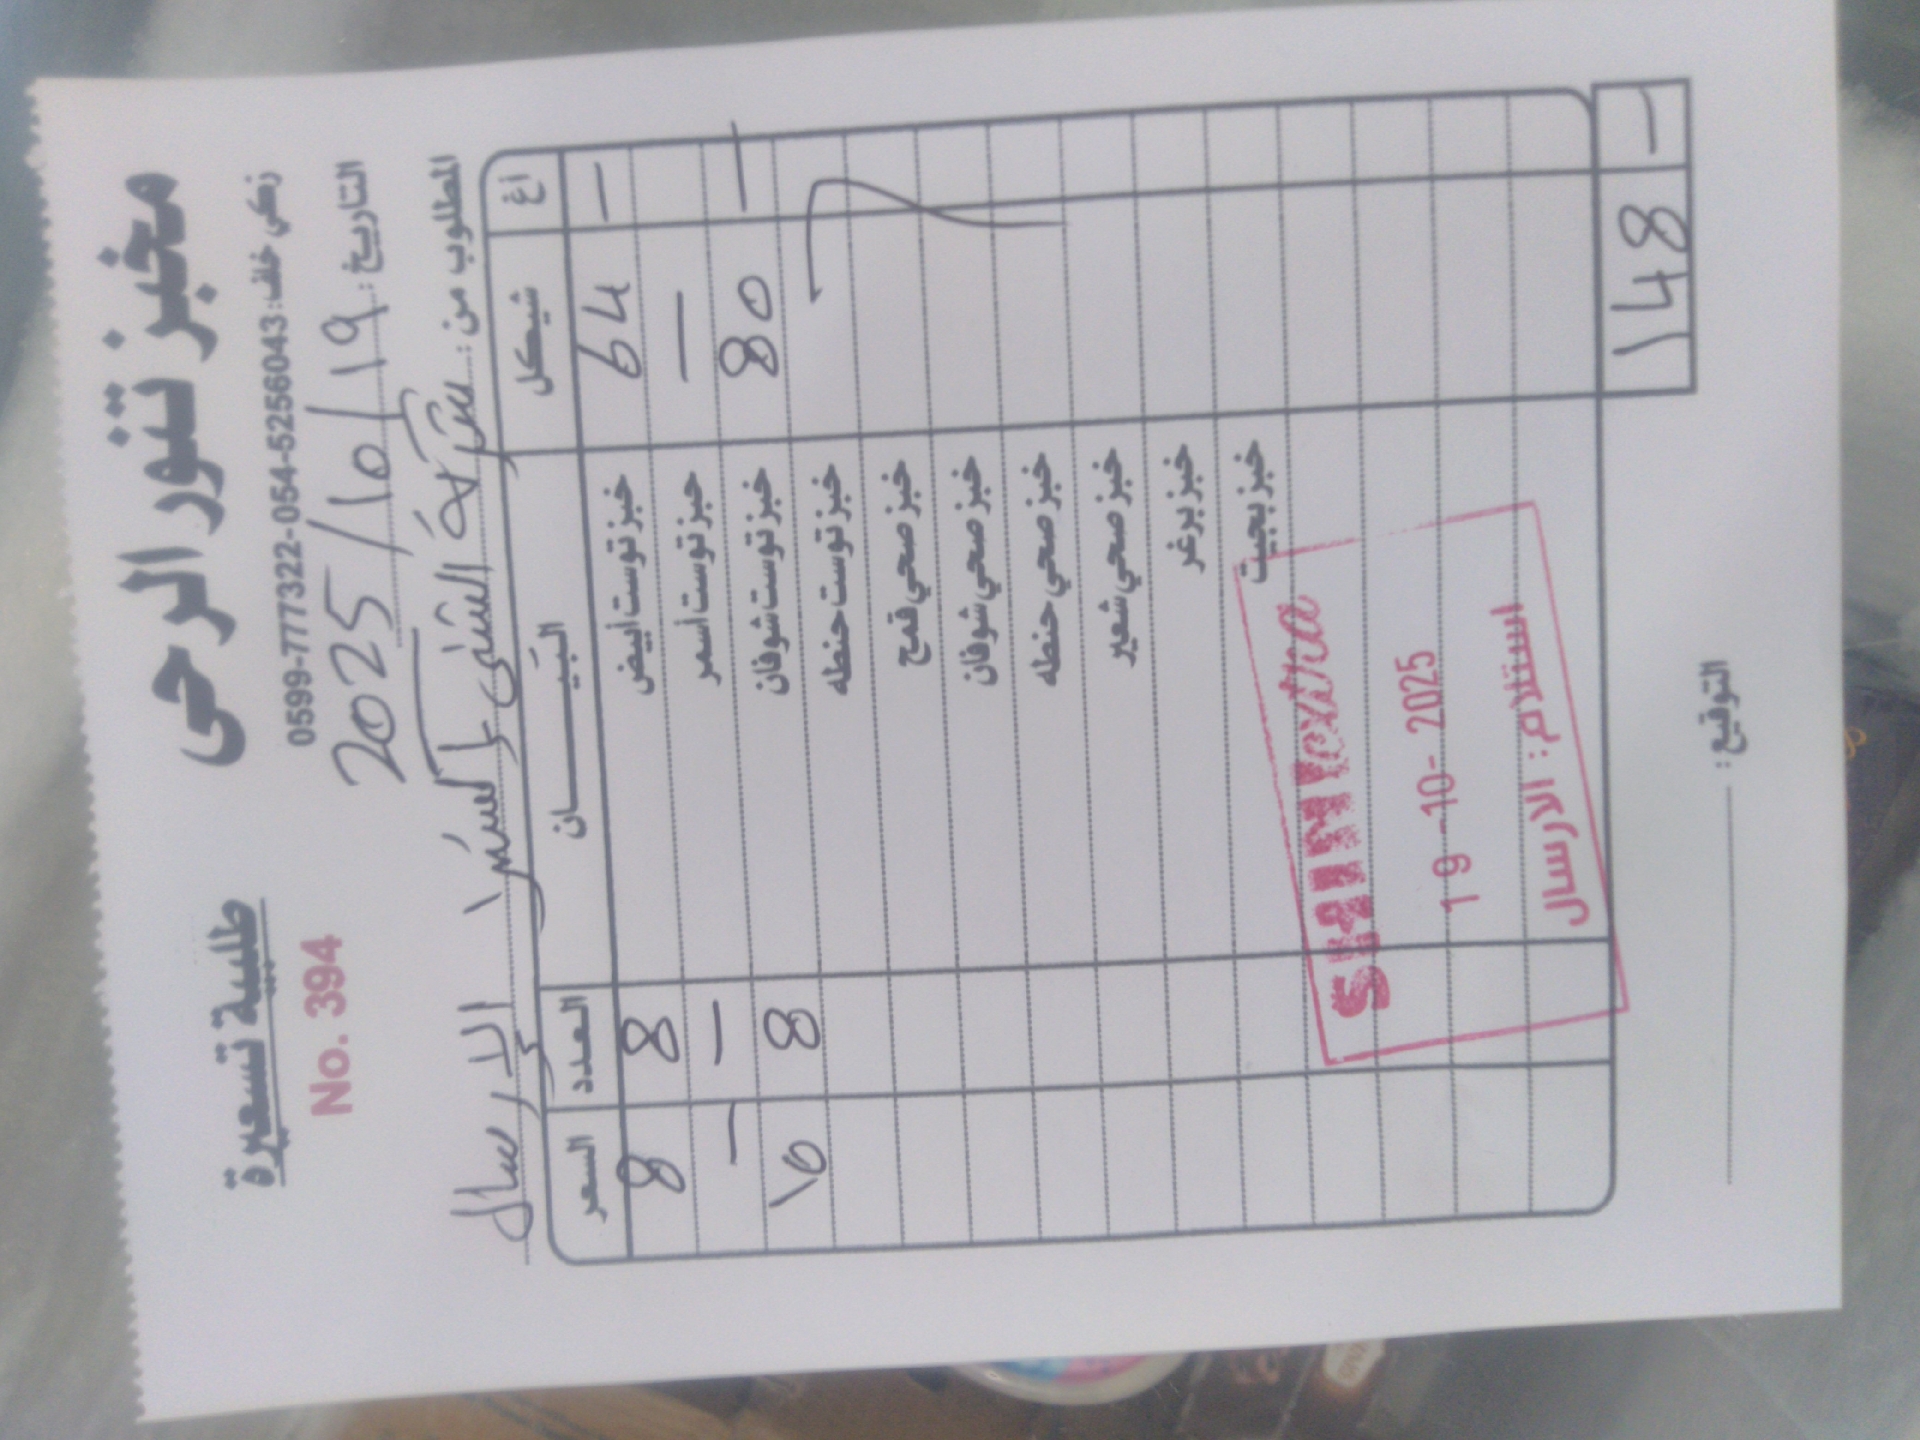 مخبز تنور الرحى
طلبية تسعيرة
زكي خلف: 0599-777322-054-5256043
No. 394
التاريخ: 2025/10/19
المطلوب من: شركة الشني اكسترا
الارسال
السعر العدد البيــــــان شيكل أغ
8 8 خبز توست أبيض 64 —
— — خبز توست أسمر —
10 8 خبز توست شوفان 80 —
خبز توست حنطه
خبز صحي قمح
خبز صحي شوفان
خبز صحي حنطه
خبز صحي شعير
خبز برغر
خبز بجيت
extra
19-10-2025
استلام: الارسال
148 —
التوقيع: